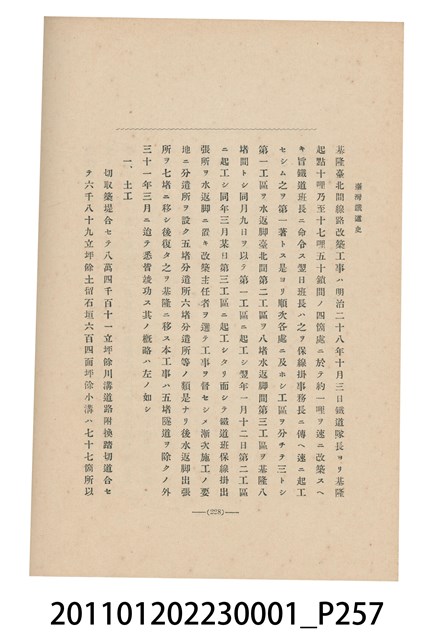 臺灣鐵道史
基隆臺北間線路改築工事ハ明治二十八年十月三日鐵道隊長ヨリ基隆
起點十哩乃至十七哩五十鎖間ノ四箇處ニ於テ約一哩ヲ速ニ改築スヘ
キ旨鐵道班長ニ命令ス翌日班長ハ之ヲ保線掛事務長ニ傳ヘ速ニ起工
セシム之ヲ第一著トス是ヨリ順次各處ニ及ホシ工區ヲ分チ三トシ
第一工區ヲ水返脚臺北間第二工區ヲ八堵水返脚間第三工區ヲ基隆八
堵間トシ同月九日ヲ以テ第一工區ニ起工シ翌年一月十二日第二工區
ニ起工シ同年三月某日第三工區ニ起工シタリ而シテ鐵道班保線掛出
張所ヲ水返脚ニ置キ改築主任者ヲ選テ工事ヲ督セシメ漸次施工ノ要
地ニ分遣所ヲ設ク五堵分遣所六堵分遣所等ノ類是ナリ後水返脚出張
所ヲ七堵ニ移シ後復タ之ヲ基隆ニ移ス本工事ハ五堵隧道ヲ除クノ外
三十一年三月ニ迨テ悉皆竣功ス其ノ概略ハ左ノ如シ
一、土工
切取築堤合セテ八萬四千百十一立坪餘川溝道路附換踏切道合セ
テ六千八十九立坪餘土留石垣六百四面坪餘小溝ハ七十七箇所以
(228)
201101202230001_P257